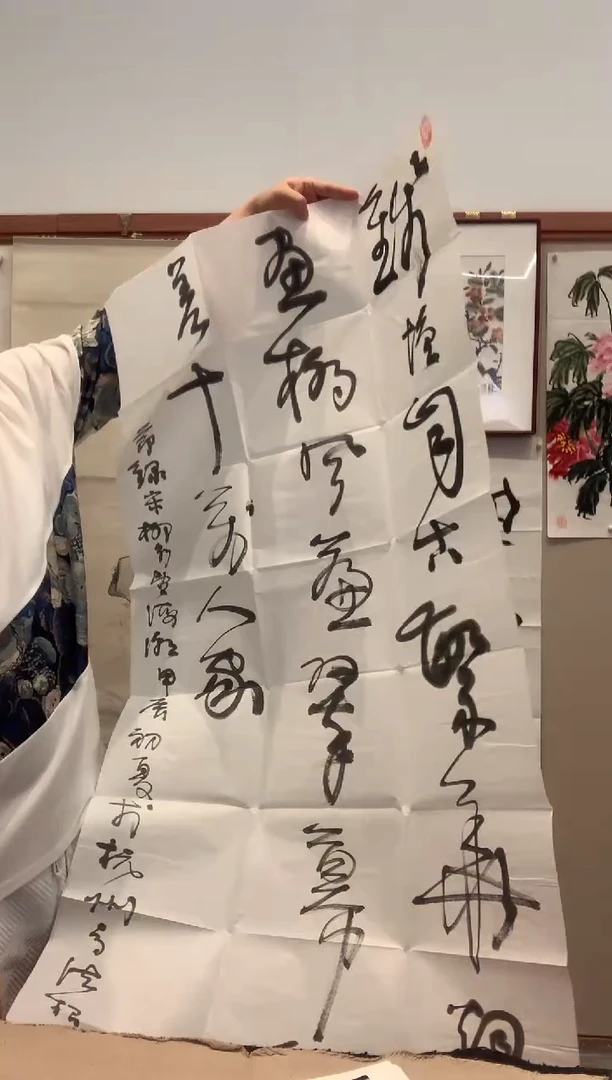 錢塘自古繁華烟
畫橋风簾翠幕
差十萬人家
節録宋柳永望海潮甲辰初夏於杭州